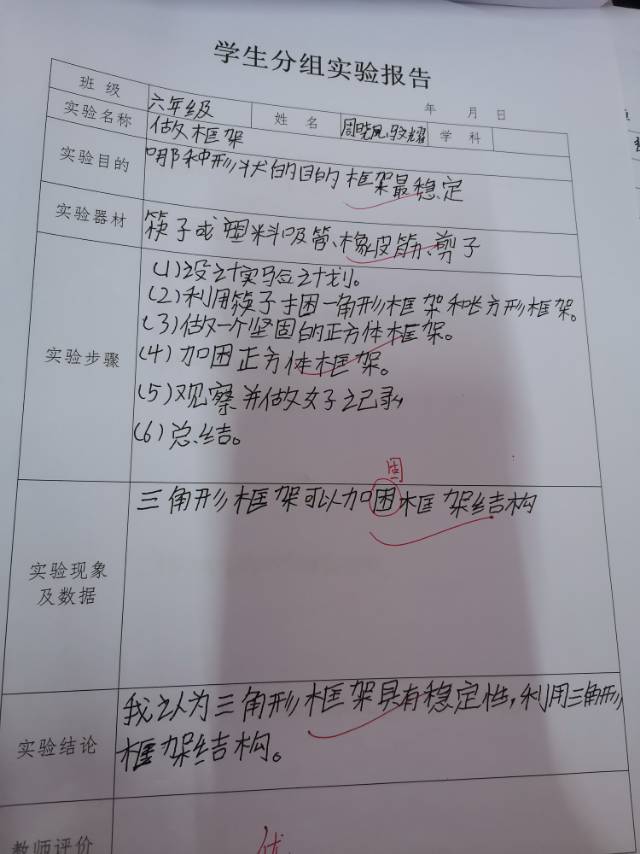 学生分组实验报告
年 月 日
班级 六年级 姓名 学科
实验名称 做框架
实验目的 哪种形状的目的框架最稳定
实验器材 筷子或塑料吸管、橡皮筋、剪子
实验步骤
(1)设计实验计划。
(2)利用筷子捆一角形框架和长方形框架。
(3)做一个坚固的正方体框架。
(4)加困正方体框架。
(5)观察并做好记录
(6)总结。
固
实验现象及数据
三角形框架可以加困框架结构
实验结论
我认为三角形框架具有稳定性,利用三角形
框架结构。
教师评价 优